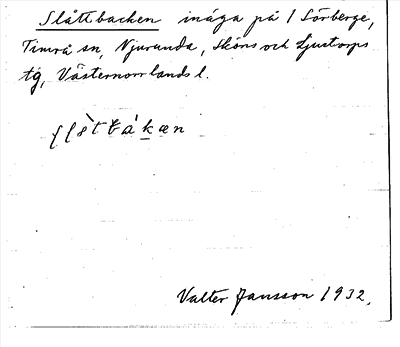 Slåttbacken inäga på 1 Sörberge,
Timrå sn, Njurunda, Sköns och Ljustorps
tg, Västernorrlands l.
Valter Jansson 1932.